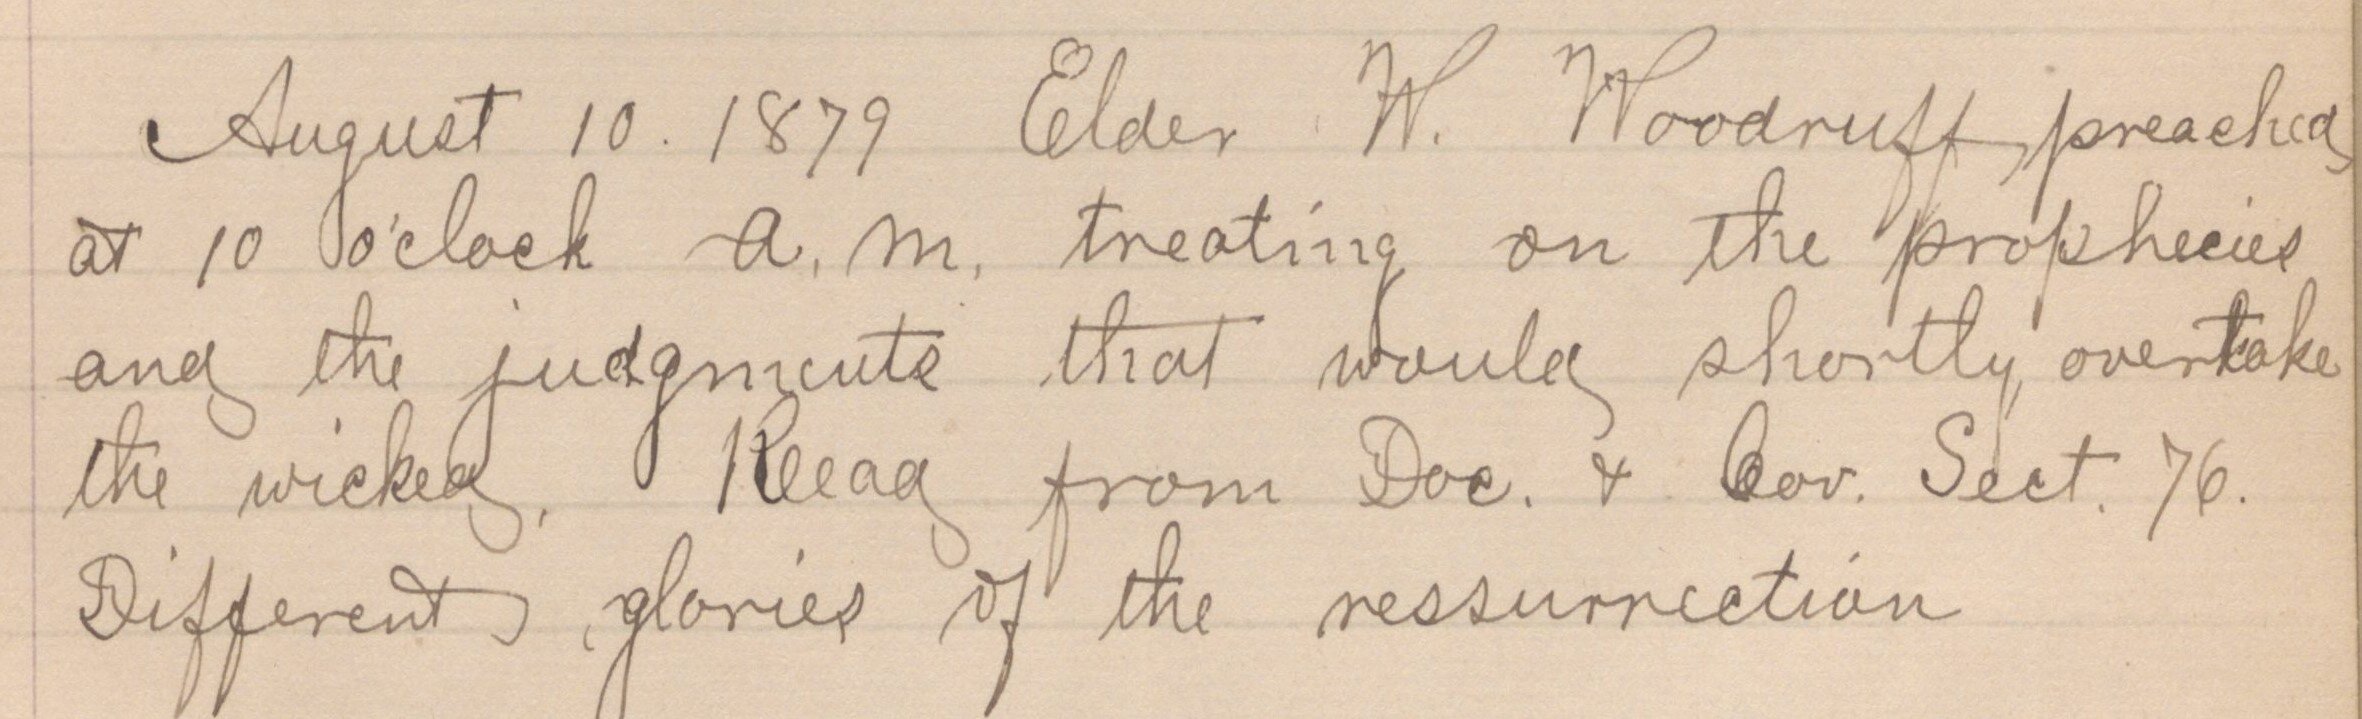 August 10. 1879 Elder W. Woodruff preached
at 10 o'clock a. m. treating on the prophecies
and the judgments that would shortly overtake
the wicked. Read from Doc. & Cov. Sect. 76.
Different glories of the ressurrection